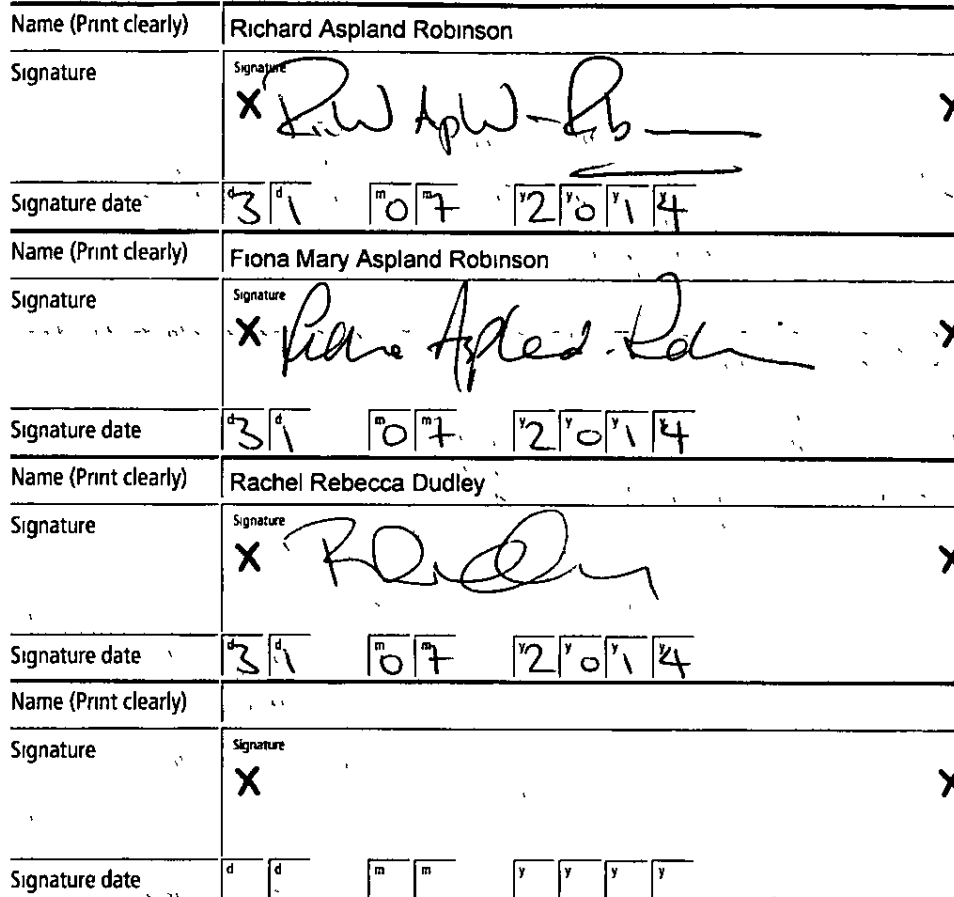 Name (Print clearly) Richard Aspland Robinson
Signature Signature
X X
Signature date d3 d1 m0 m7 y2 y0 y1 y4
Name (Print clearly) Fiona Mary Aspland Robinson
Signature Signature
X Aspland-Robinson X
Signature date d3 d1 m0 m7 y2 y0 y1 y4
Name (Print clearly) Rachel Rebecca Dudley
Signature Signature
X RDudley X
Signature date d3 d1 m0 m7 y2 y0 y1 y4
Name (Print clearly)
Signature Signature
X X
Signature date d d m m y y y y